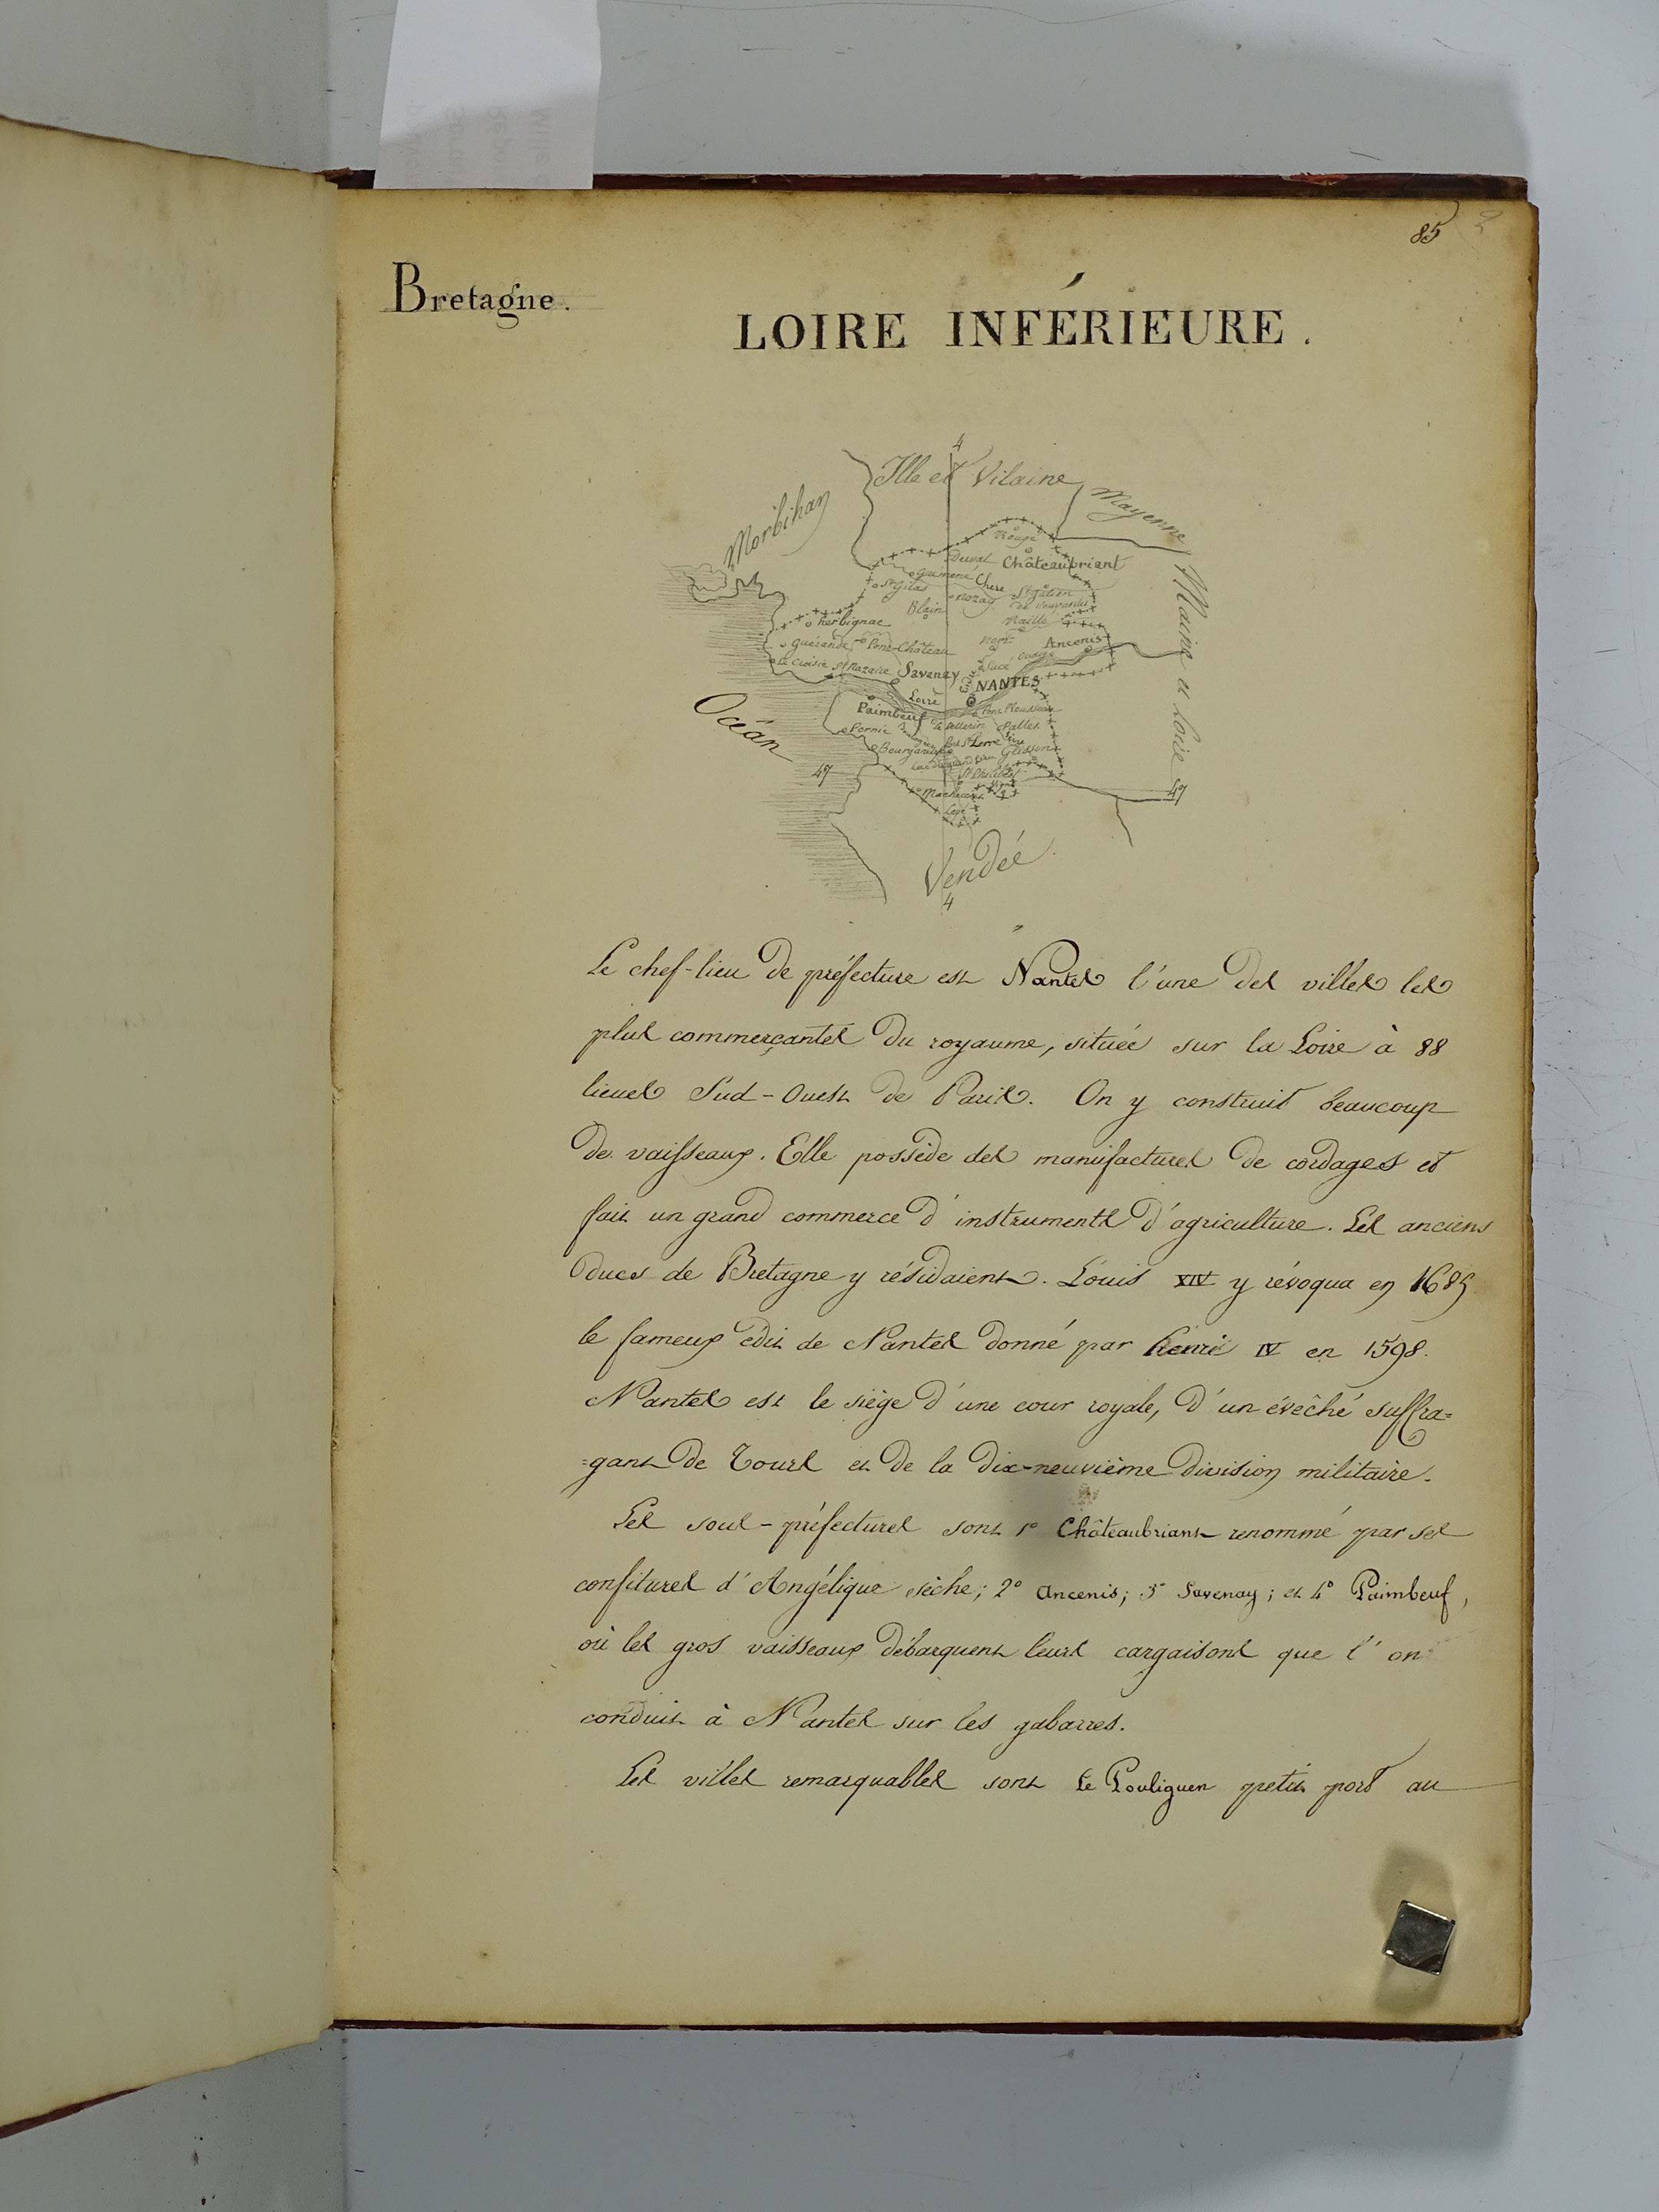 85
Bretagne.
LOIRE INFÉRIEURE.
4
Ille et Vilaine
Mayenne
Morbihan
Rougé
Derval
Châteaubriant
Guémené
Chere
St Gildas
Nozay
St Julien
de Vouvantes
Blain
Maine et Loire
Herbignac
Raillé
Nort
Ancenis
Guérande
Pont-Château
Oudon
Sucé
Le Croisic
St Nazaire
Savenay
NANTES
Loire
Paimbeuf
Le Pellerin
Vallet
Pornic
Bourgneuf
Clisson
Océan
47
47
Machecoul
Legé
Vendée
4
Le chef-lieu de préfecture est Nantes l'une des villes les
plus commerçantes du royaume, située sur la Loire à 88
lieues Sud-Ouest de Paris. On y construit beaucoup
de vaisseaux. Elle possède des manufactures de cordages et
fait un grand commerce d'instruments d'agriculture. Les anciens
ducs de Bretagne y résidaient. Louis XIV y révoqua en 1685
le fameux édit de Nantes donné par henri IV en 1598.
Nantes est le siège d'une cour royale, d'un évêché suffra=
=gant de Tours et de la dix-neuvième division militaire.
Les sous-préfectures sont 1° Châteaubriant renommé par ses
confitures d'Angélique sèche; 2° Ancenis; 3° Savenay; et 4° Paimbeuf,
où les gros vaisseaux débarquent leurs cargaisons que l'on
conduit à Nantes sur les gabarres.
Les villes remarquables sont Le Pouliguen petit port au